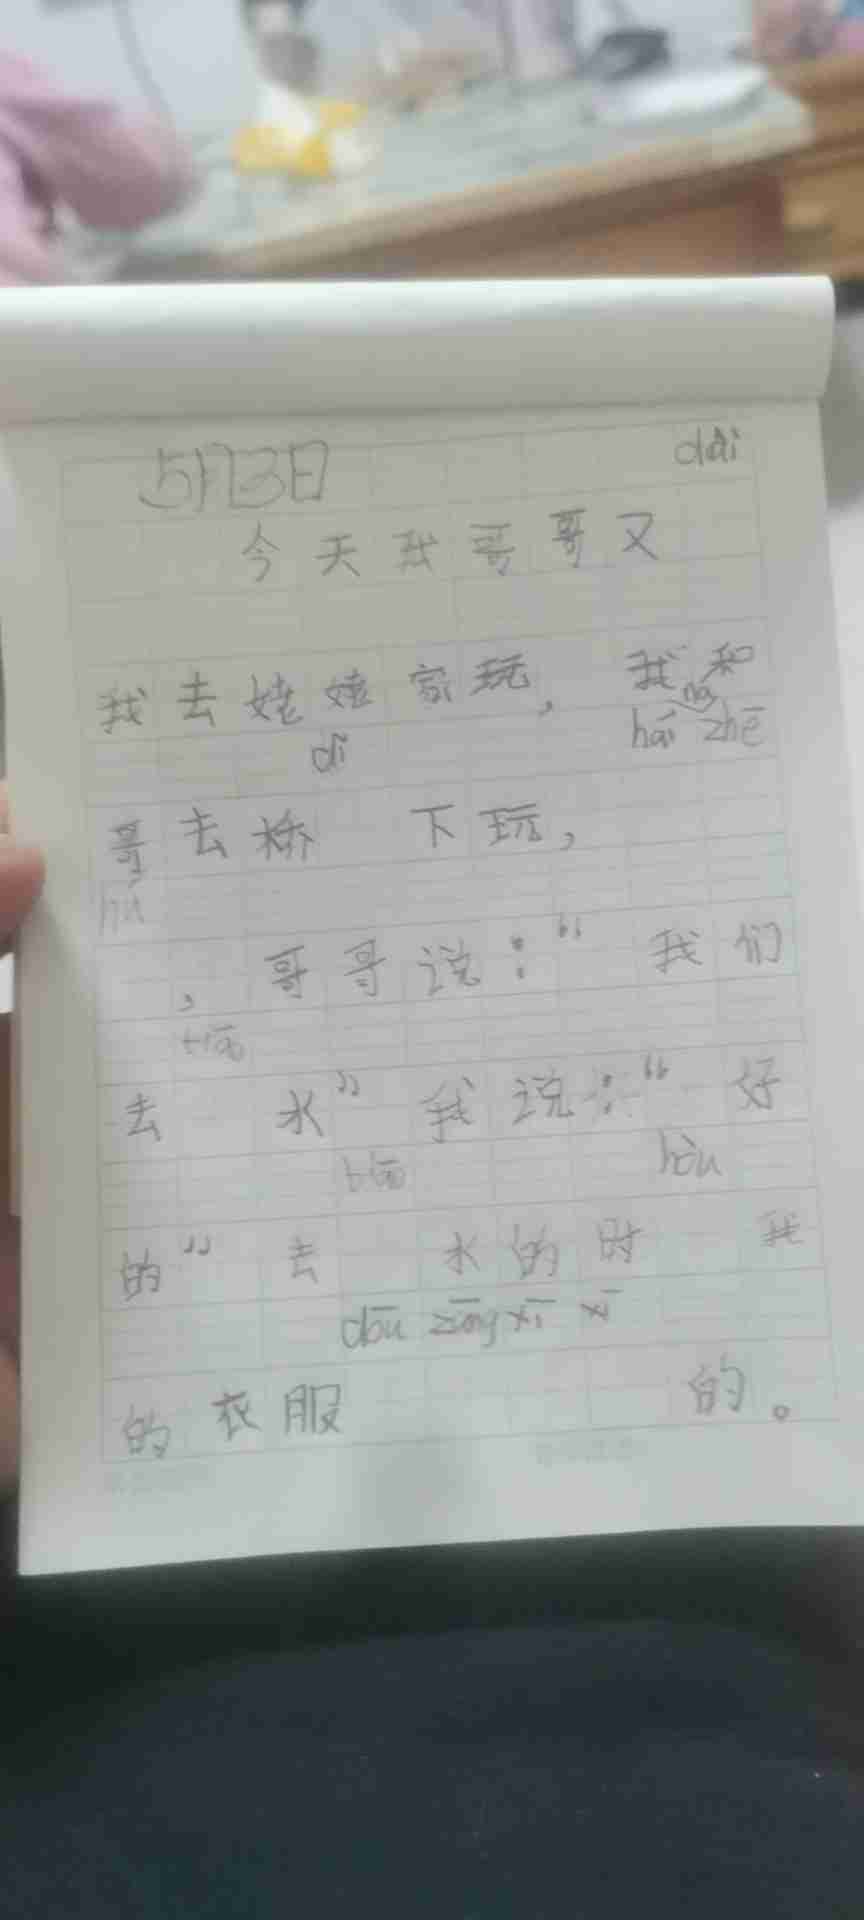 5月3日
dài
今天我哥哥又
我去姥姥家玩，我和
dǐ
哥去桥 下玩，
，哥哥说：“我们
去 水”我说：“好
hòu
的”去 水的时 我
dōu zāng xī xī
的衣服 的。